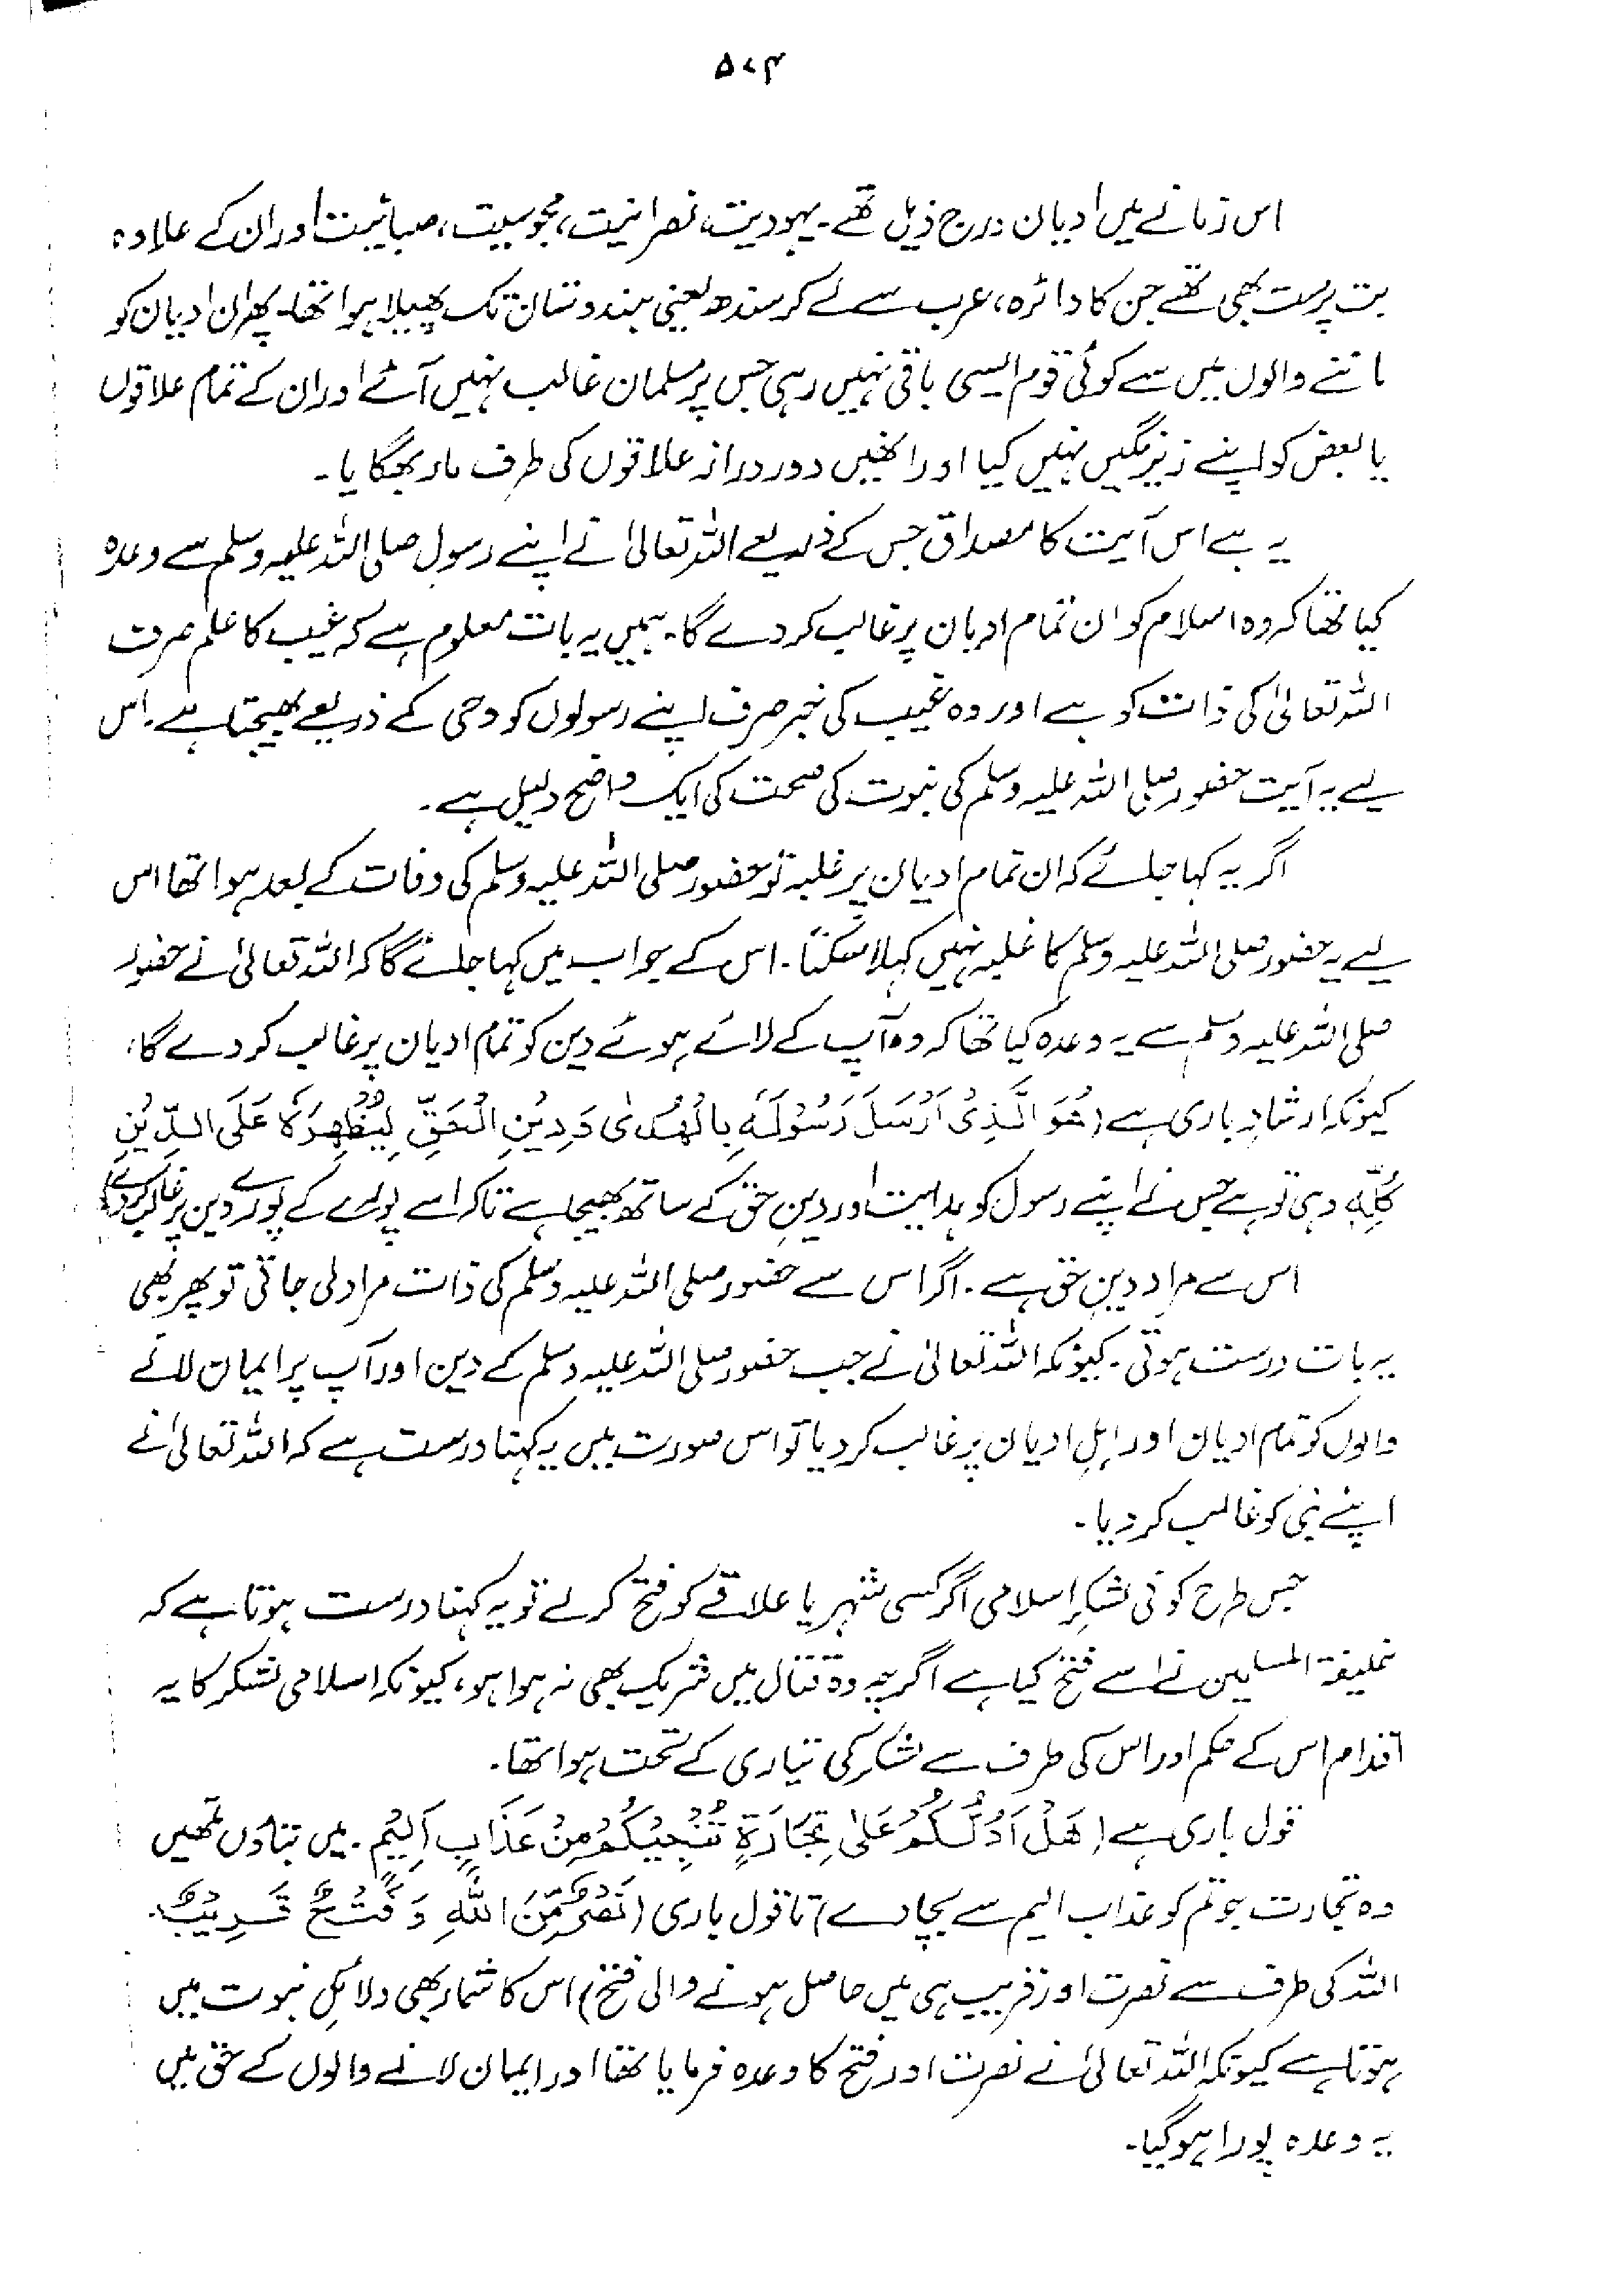 ۵۷۴
اس زمانے میں ادیان درج ذیل تھے۔ یہودیت، نصرانیت، مجوسیت، صبائیت اور ان کے علاوہ
بت پرست بھی تھے جن کا دائرہ، عرب سے لے کر سندھ یعنی ہندوستان تک پھیلا ہوا تھا۔ پھر ان ادیان کو
ماننے والوں میں سے کوئی قوم ایسی باقی نہیں رہی جس پر مسلمان غالب نہیں آئے اور ان کے تمام علاقوں
یا بعض کو اپنے زیر نگیں نہیں کیا اور انھیں دور دراز علاقوں کی طرف مار بھگایا۔
یہ ہے اس آیت کا مصداق جس کے ذریعے اللہ تعالیٰ نے اپنے رسول صلی اللہ علیہ وسلم سے وعدہ
کیا تھا کہ وہ اسلام کو ان تمام ادیان پر غالب کر دے گا۔ ہمیں یہ بات معلوم ہے کہ غیب کا علم صرف
اللہ تعالیٰ کی ذات کو ہے اور وہ غیب کی خبر صرف اپنے رسولوں کو وحی کے ذریعے بھیجتا ہے۔ اس
لیے یہ آیت حضور صلی اللہ علیہ وسلم کی نبوت کی صحت کی ایک واضح دلیل ہے۔
اگر یہ کہا جائے کہ ان تمام ادیان پر غلبہ تو حضور صلی اللہ علیہ وسلم کی وفات کے بعد ہوا تھا اس
لیے یہ حضور صلی اللہ علیہ وسلم کا غلبہ نہیں کہلا سکتا۔ اس کے جواب میں کہا جائے گا کہ اللہ تعالیٰ نے حضور
صلی اللہ علیہ وسلم سے یہ وعدہ کیا تھا کہ وہ آپ کے لائے ہوئے دین کو تمام ادیان پر غالب کر دے گا،
کیونکہ ارشادِ باری ہے (هُوَ الَّذِیْ اَرْسَلَ رَسُوْلَهٗ بِالْهُدٰى وَدِیْنِ الْحَقِّ لِیُظْهِرَهٗ عَلَى الدِّیْنِ
كُلِّهٖ وہی تو ہے جس نے اپنے رسول کو ہدایت اور دینِ حق کے ساتھ بھیجا ہے تاکہ اسے پورے کے پورے دین پر غالب کر دے)
اس سے مراد دینِ حق ہے۔ اگر اس سے حضور صلی اللہ علیہ وسلم کی ذات مراد لی جاتی تو پھر بھی
یہ بات درست ہوتی۔ کیونکہ اللہ تعالیٰ نے جب حضور صلی اللہ علیہ وسلم کے دین اور آپ پر ایمان لانے
والوں کو تمام ادیان اور اہلِ ادیان پر غالب کر دیا تو اس صورت میں یہ کہنا درست ہے کہ اللہ تعالیٰ نے
اپنے نبی کو غالب کر دیا۔
جس طرح کوئی لشکرِ اسلامی اگر کسی شہر یا علاقے کو فتح کر لے تو یہ کہنا درست ہوتا ہے کہ
خلیفۃ المسلمین نے اسے فتح کیا ہے اگرچہ وہ قتال میں شریک بھی نہ ہوا ہو، کیونکہ اسلامی لشکر کا یہ
اقدام اس کے حکم اور اس کی طرف سے لشکر کی تیاری کے تحت ہوا تھا۔
قول باری ہے (هَلْ اَدُلُّكُمْ عَلٰى تِجَارَةٍ تُنْجِیْكُمْ مِنْ عَذَابٍ اَلِیْمٍ۔ میں بتاؤں تمھیں
وہ تجارت جو تم کو عذاب الیم سے بچا دے) تا قول باری (نَصْرٌ مِّنَ اللّٰهِ وَفَتْحٌ قَرِیْبٌ۔
اللہ کی طرف سے نصرت اور قریب ہی میں حاصل ہونے والی فتح) اس کا شمار بھی دلائلِ نبوت میں
ہوتا ہے کیونکہ اللہ تعالیٰ نے نصرت اور فتح کا وعدہ فرمایا تھا اور ایمان لانے والوں کے حق میں
یہ وعدہ پورا ہو گیا۔